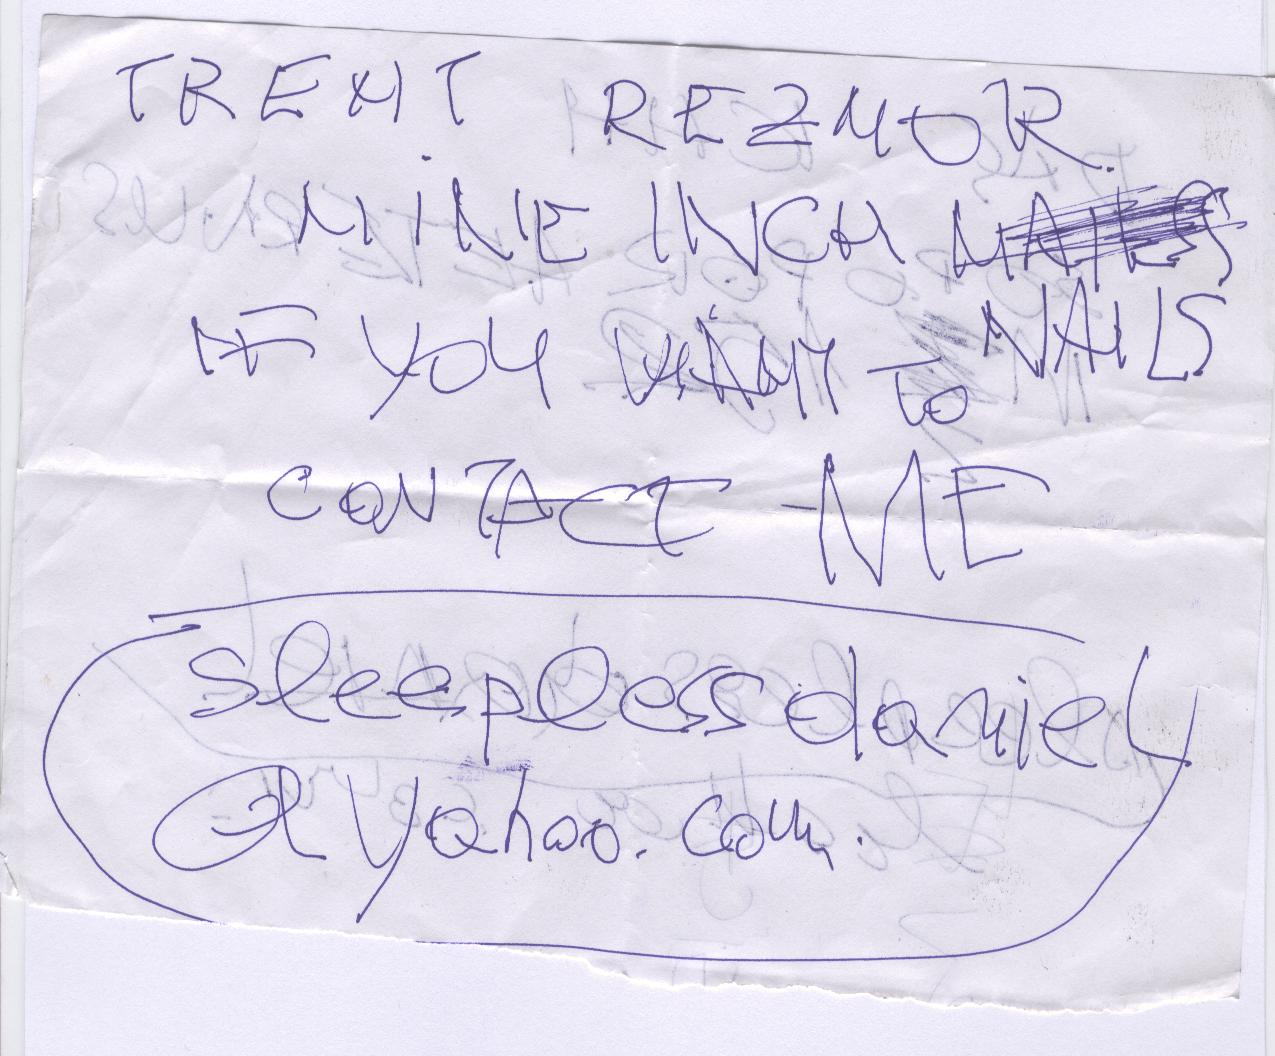 TRENT REZNOR.
NINE INCH NAILS
NAILS
IF YOU WANT TO
CONTACT ME
sleepless daniel
@yahoo.com.